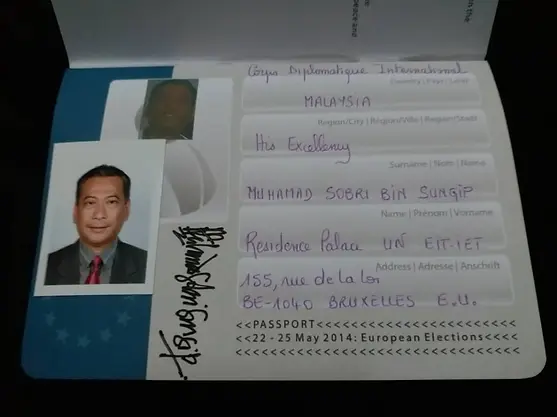 Corps Diplomatique International
Country | Pays | Land
MALAYSIA
Region/City | Région/Ville | Region/Stadt
His Excellency
Surname | Nom | Name
MUHAMAD SOBRI BIN SUNGIP
Name | Prénom | Vorname
Residence Palace UN EIT-IET
Address | Adresse | Anschrift
155, rue de la Loi
BE-1040 BRUXELLES E.U.
<<PASSPORT<<<<<<<<<<<<<<<<<<<<<
<<22 - 25 May 2014: European Elections<<<<<
<<<<<<<<<<<<<<<<<<<<<<<<<<<<<<